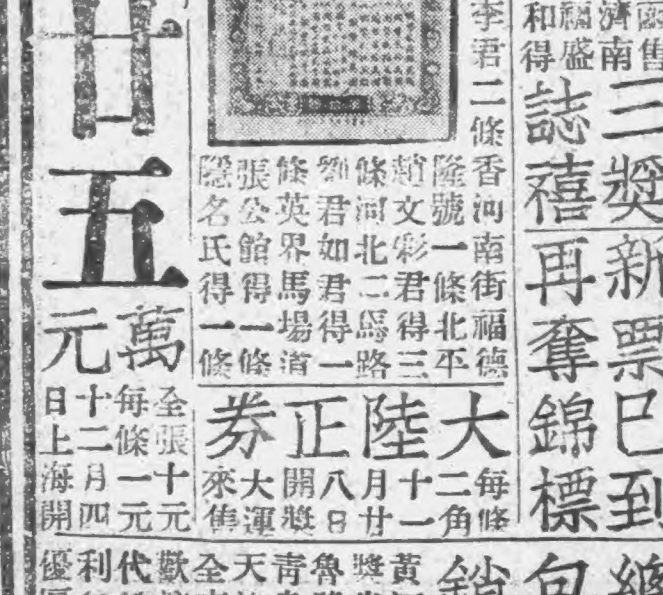 售
濟南
福盛
和得
三獎
誌禧
新票已到
再奪錦標
李君二條香河南街福德
隆號一條北平
趙文彩君得三
條河北二馬路
劉君如君得一
條英界馬場道
張公館得一條
隱名氏得一條
大陸正券
每條
二角
十一
月廿
八日
開獎
大運
來售
廿五
萬元
全張十元
每條一元
十二月四
日上海開
總包銷
黃
獎
魯
青
天
全
歡
代
利
優